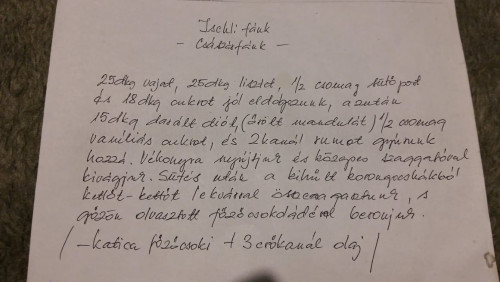 Ischli fánk
- Császárfánk -
25dkg vajat, 25dkg lisztet, 1/2 csomag sütőport
és 18dkg cukrot jól eldolgozunk, azután
15dkg darált diót, (őrölt mandulát) 1/2 csomag
vaniliás cukrot, és 2kanál rumot gyúrunk
hozzá. Vékonyra nyújtjuk és közepes szaggatóval
kivágjuk. Sütés után a kihűlt korongocskákból
kettőt-kettőt lekvárral összeragasztunk, s
gőzön olvasztott főzőcsokoládéval bevonjuk.
/ -katica főzőcsoki + 3 evőkanál olaj /